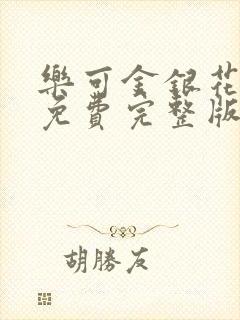 樂可金銀花
免費完整版
胡勝友